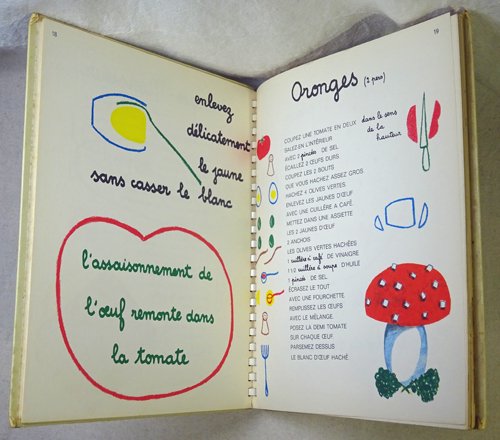 18
enlevez
délicatement
le jaune
sans casser le blanc
l'assaisonnement de
l'œuf remonte dans
la tomate
19
Oronges (2 pers)
COUPEZ UNE TOMATE EN DEUX dans le sens de la hauteur
SALEZ-EN L'INTÉRIEUR
AVEC 2 pincées DE SEL
ÉCAILLEZ 2 ŒUFS DURS
COUPEZ LES 2 BOUTS
QUE VOUS HACHEZ ASSEZ GROS
HACHEZ 4 OLIVES VERTES
ENLEVEZ LES JAUNES D'ŒUF
AVEC UNE CUILLÈRE A CAFÉ.
METTEZ DANS UNE ASSIETTE
LES 2 JAUNES D'ŒUF
2 ANCHOIS
LES OLIVES VERTES HACHÉES
1 cuillère à café DE VINAIGRE
1 1/2 cuillère à soupe D'HUILE
1 pincée DE SEL
ÉCRASEZ LE TOUT
AVEC UNE FOURCHETTE
REMPLISSEZ LES ŒUFS
AVEC LE MÉLANGE.
POSEZ LA DEMI TOMATE
SUR CHAQUE ŒUF.
PARSEMEZ DESSUS
LE BLANC D'ŒUF HACHÉ